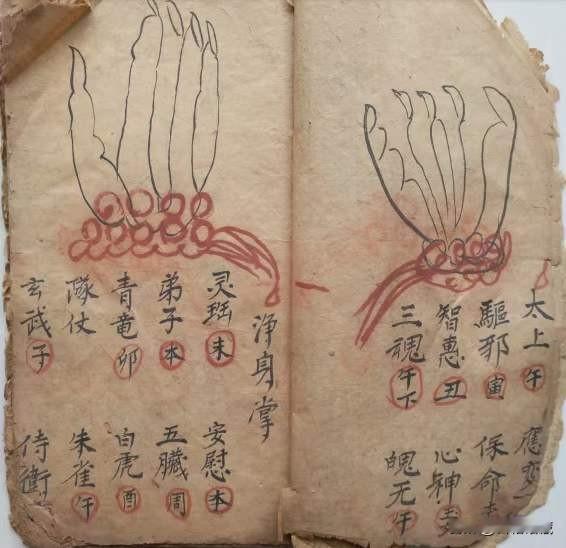 太上午 應变
驅邪寅 保命
智惠丑 心神
三魂午下 魄无午
淨身掌
灵珤未 安慰本
弟子本 五臟周
青竜卯 白虎酉
隊仗 朱雀午
玄武子 侍衛